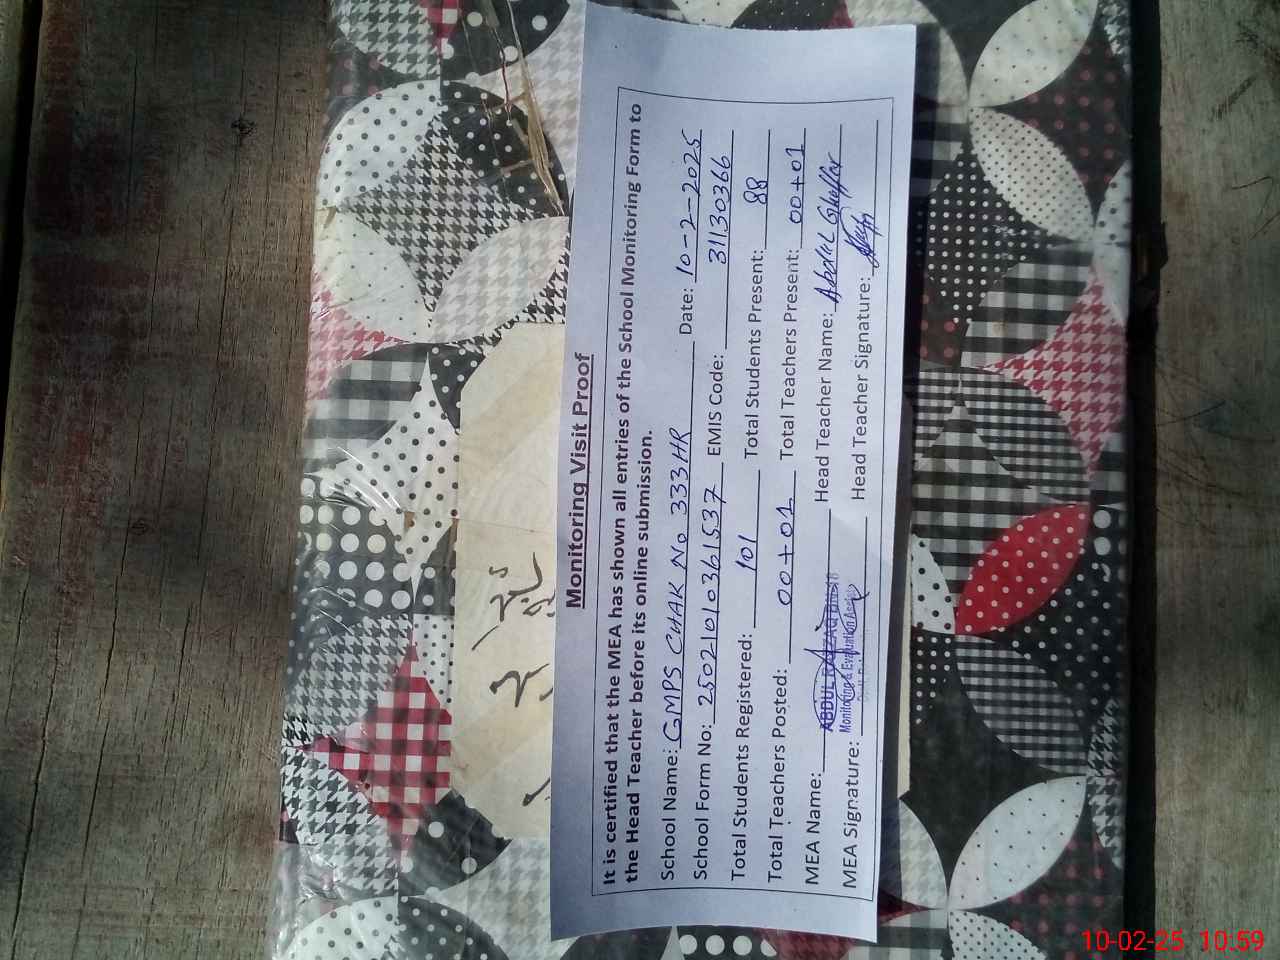 Monitoring Visit Proof
It is certified that the MEA has shown all entries of the School Monitoring Form to
the Head Teacher before its online submission.
School Name: GMPS CHAK No 333HR Date: 10-2-2025
School Form No: 2502101036 1537 EMIS Code: 31130366
Total Students Registered: 101 Total Students Present: 88
Total Teachers Posted: 00+01 Total Teachers Present: 00+01
MEA Name: ABDUL RAZZAQ Head Teacher Name: Abdul Ghaffar
MEA Signature: Monitoring & Evaluation Head Teacher Signature:
10-02-25 10:59